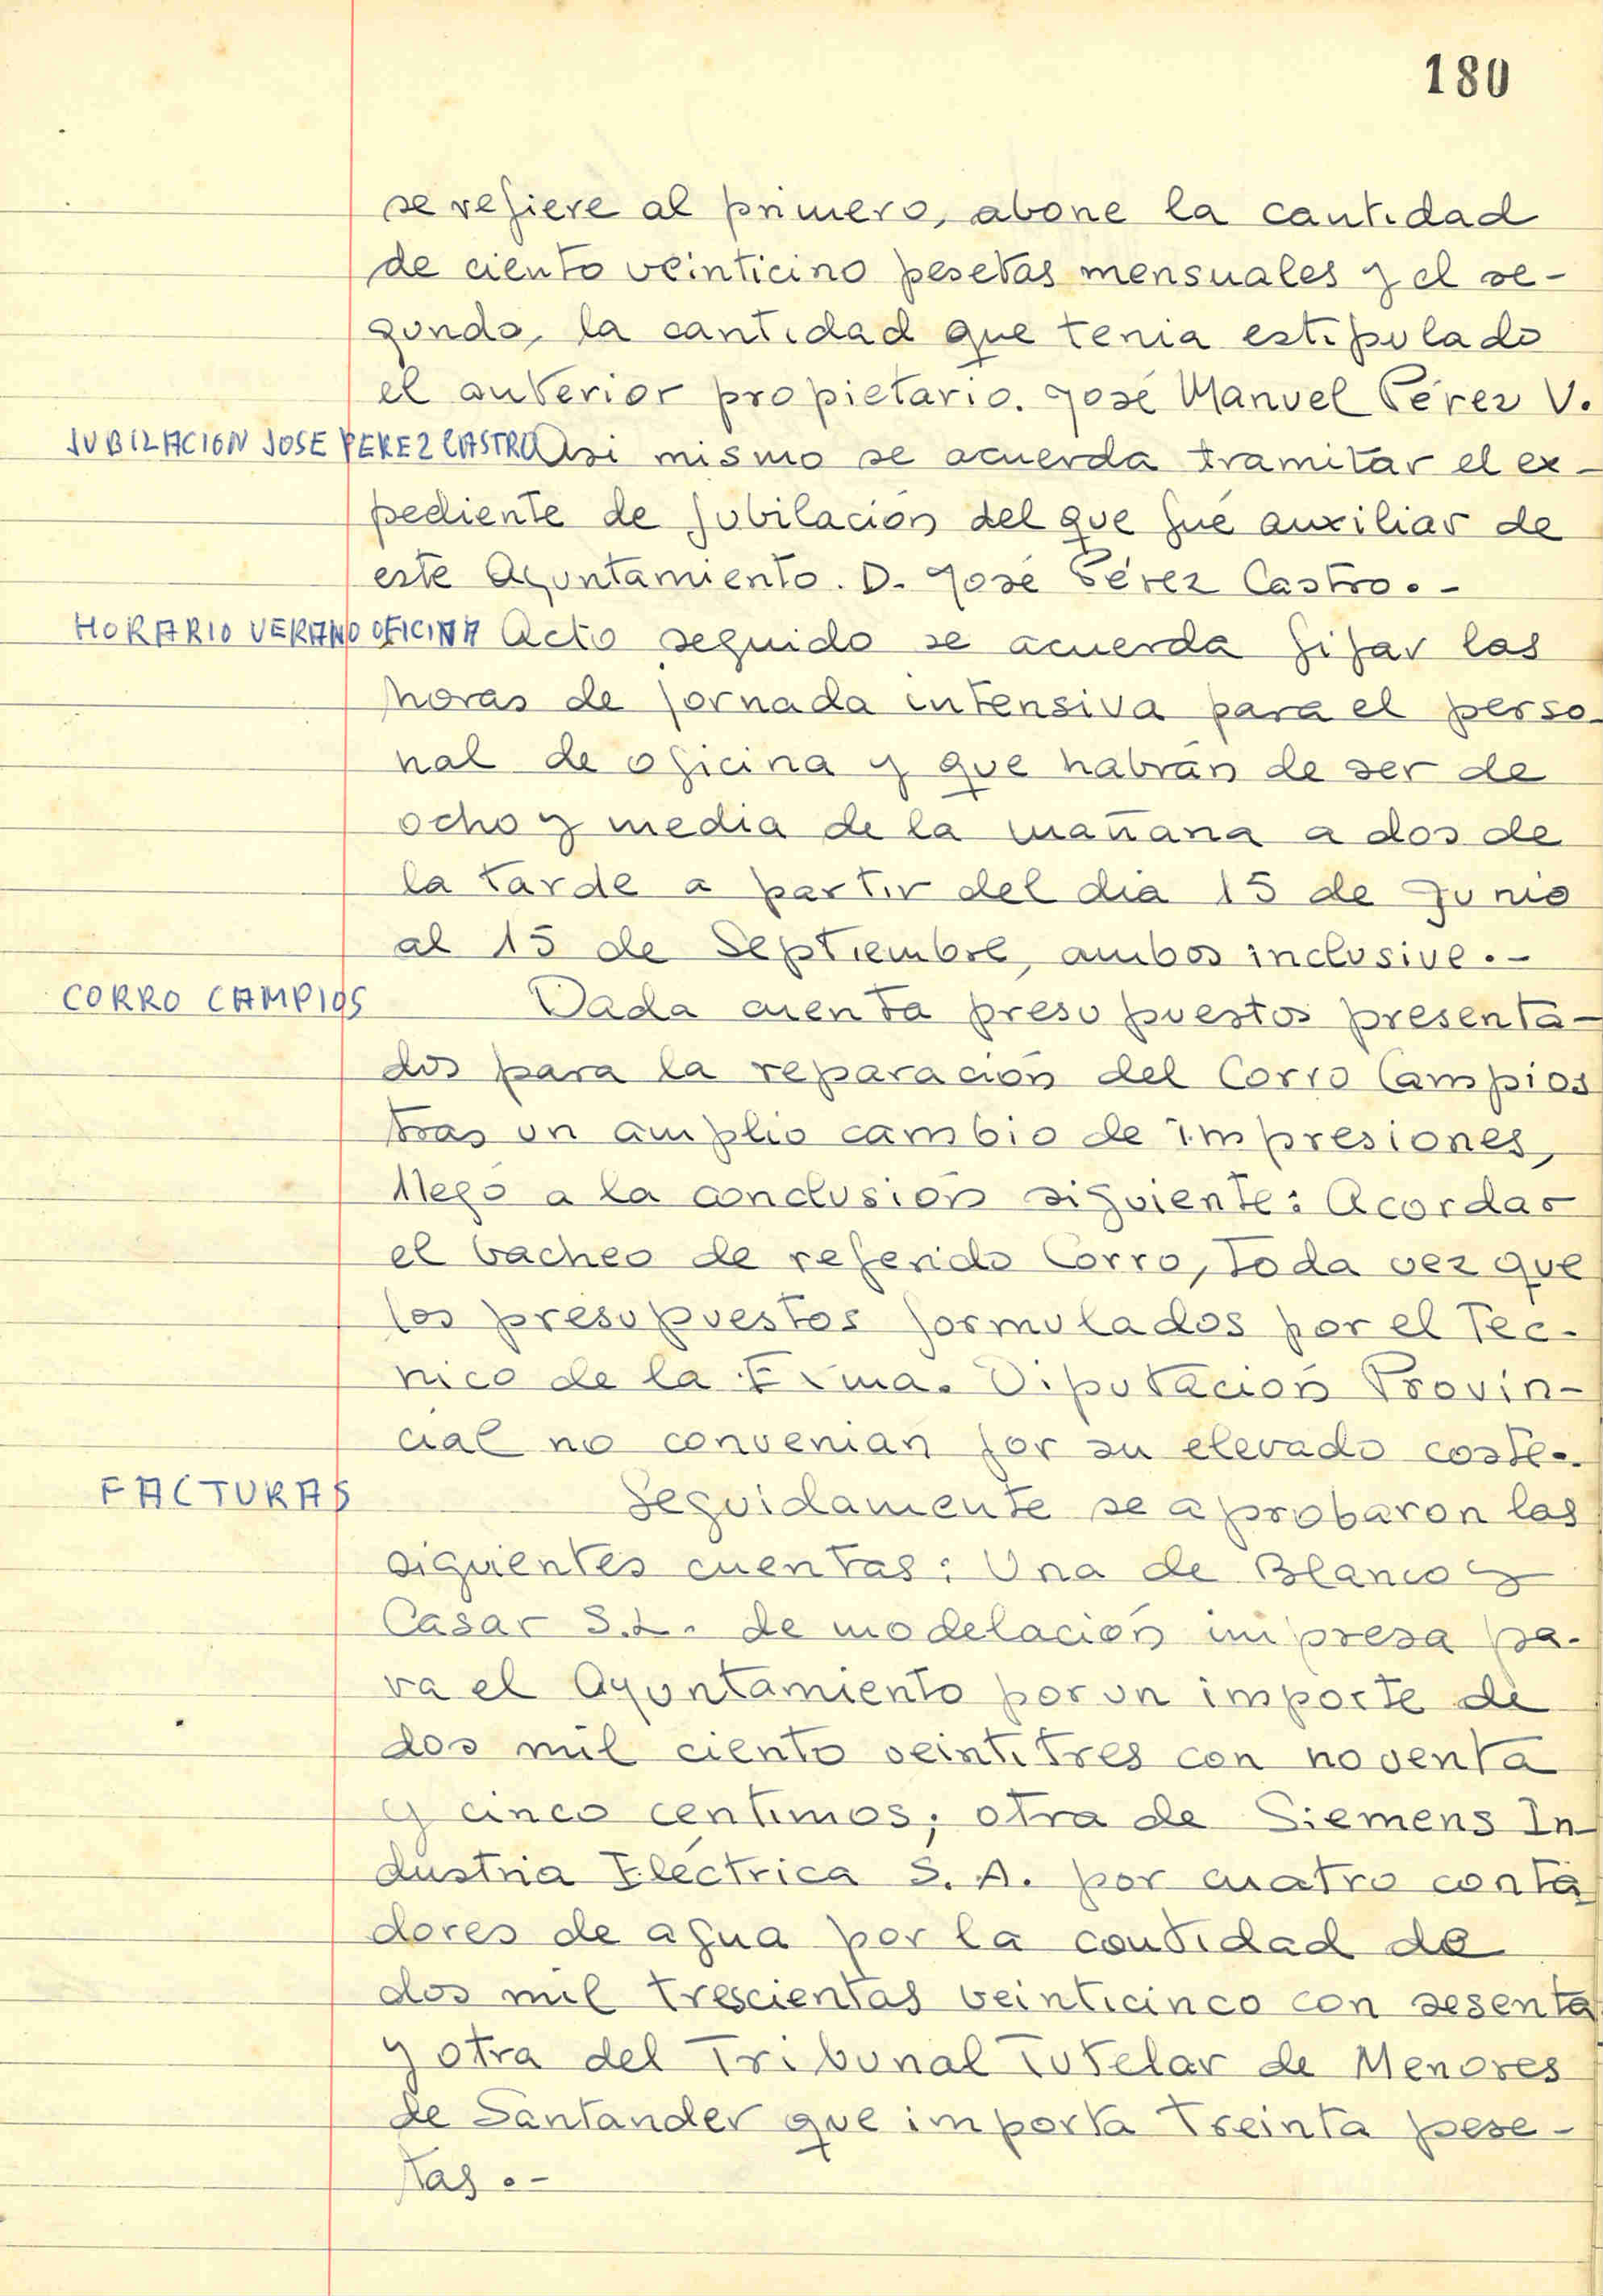 180
se refiere al primero, abone la cantidad
de ciento veinticino pesetas mensuales y el se-
gundo, la cantidad que tenia estipulado
el anterior propietario. José Manuel Pérez V.
JUBILACION JOSE PEREZ CASTRO Asi mismo se acuerda tramitar el ex-
pediente de jubilación del que fué auxiliar de
este Ayuntamiento. D. José Pérez Castro.-
HORARIO VERANO OFICINA Acto seguido se acuerda fijar las
horas de jornada intensiva para el perso-
nal de oficina y que habrán de ser de
ocho y media de la mañana a dos de
la tarde a partir del dia 15 de Junio
al 15 de Septiembre, ambos inclusive.-
CORRO CAMPIOS Dada cuenta presupuestos presenta-
dos para la reparación del Corro Campios
tras un amplio cambio de impresiones,
llegó a la conclusión siguiente: Acordar
el bacheo de referido Corro, toda vez que
los presupuestos formulados por el Tec-
nico de la Exma. Diputación Provin-
cial no convenian por su elevado coste.-
FACTURAS Seguidamente se aprobaron las
siguientes cuentas: Una de Blanco y
Casar S.L. de modelación impresa pa-
ra el Ayuntamiento por un importe de
dos mil ciento veintitres con noventa
y cinco centimos; otra de Siemens In-
dustria Eléctrica S. A. por cuatro conta
dores de agua por la cantidad de
dos mil trescientas veinticinco con sesenta
y otra del Tribunal Tutelar de Menores
de Santander que importa treinta pese-
tas.-